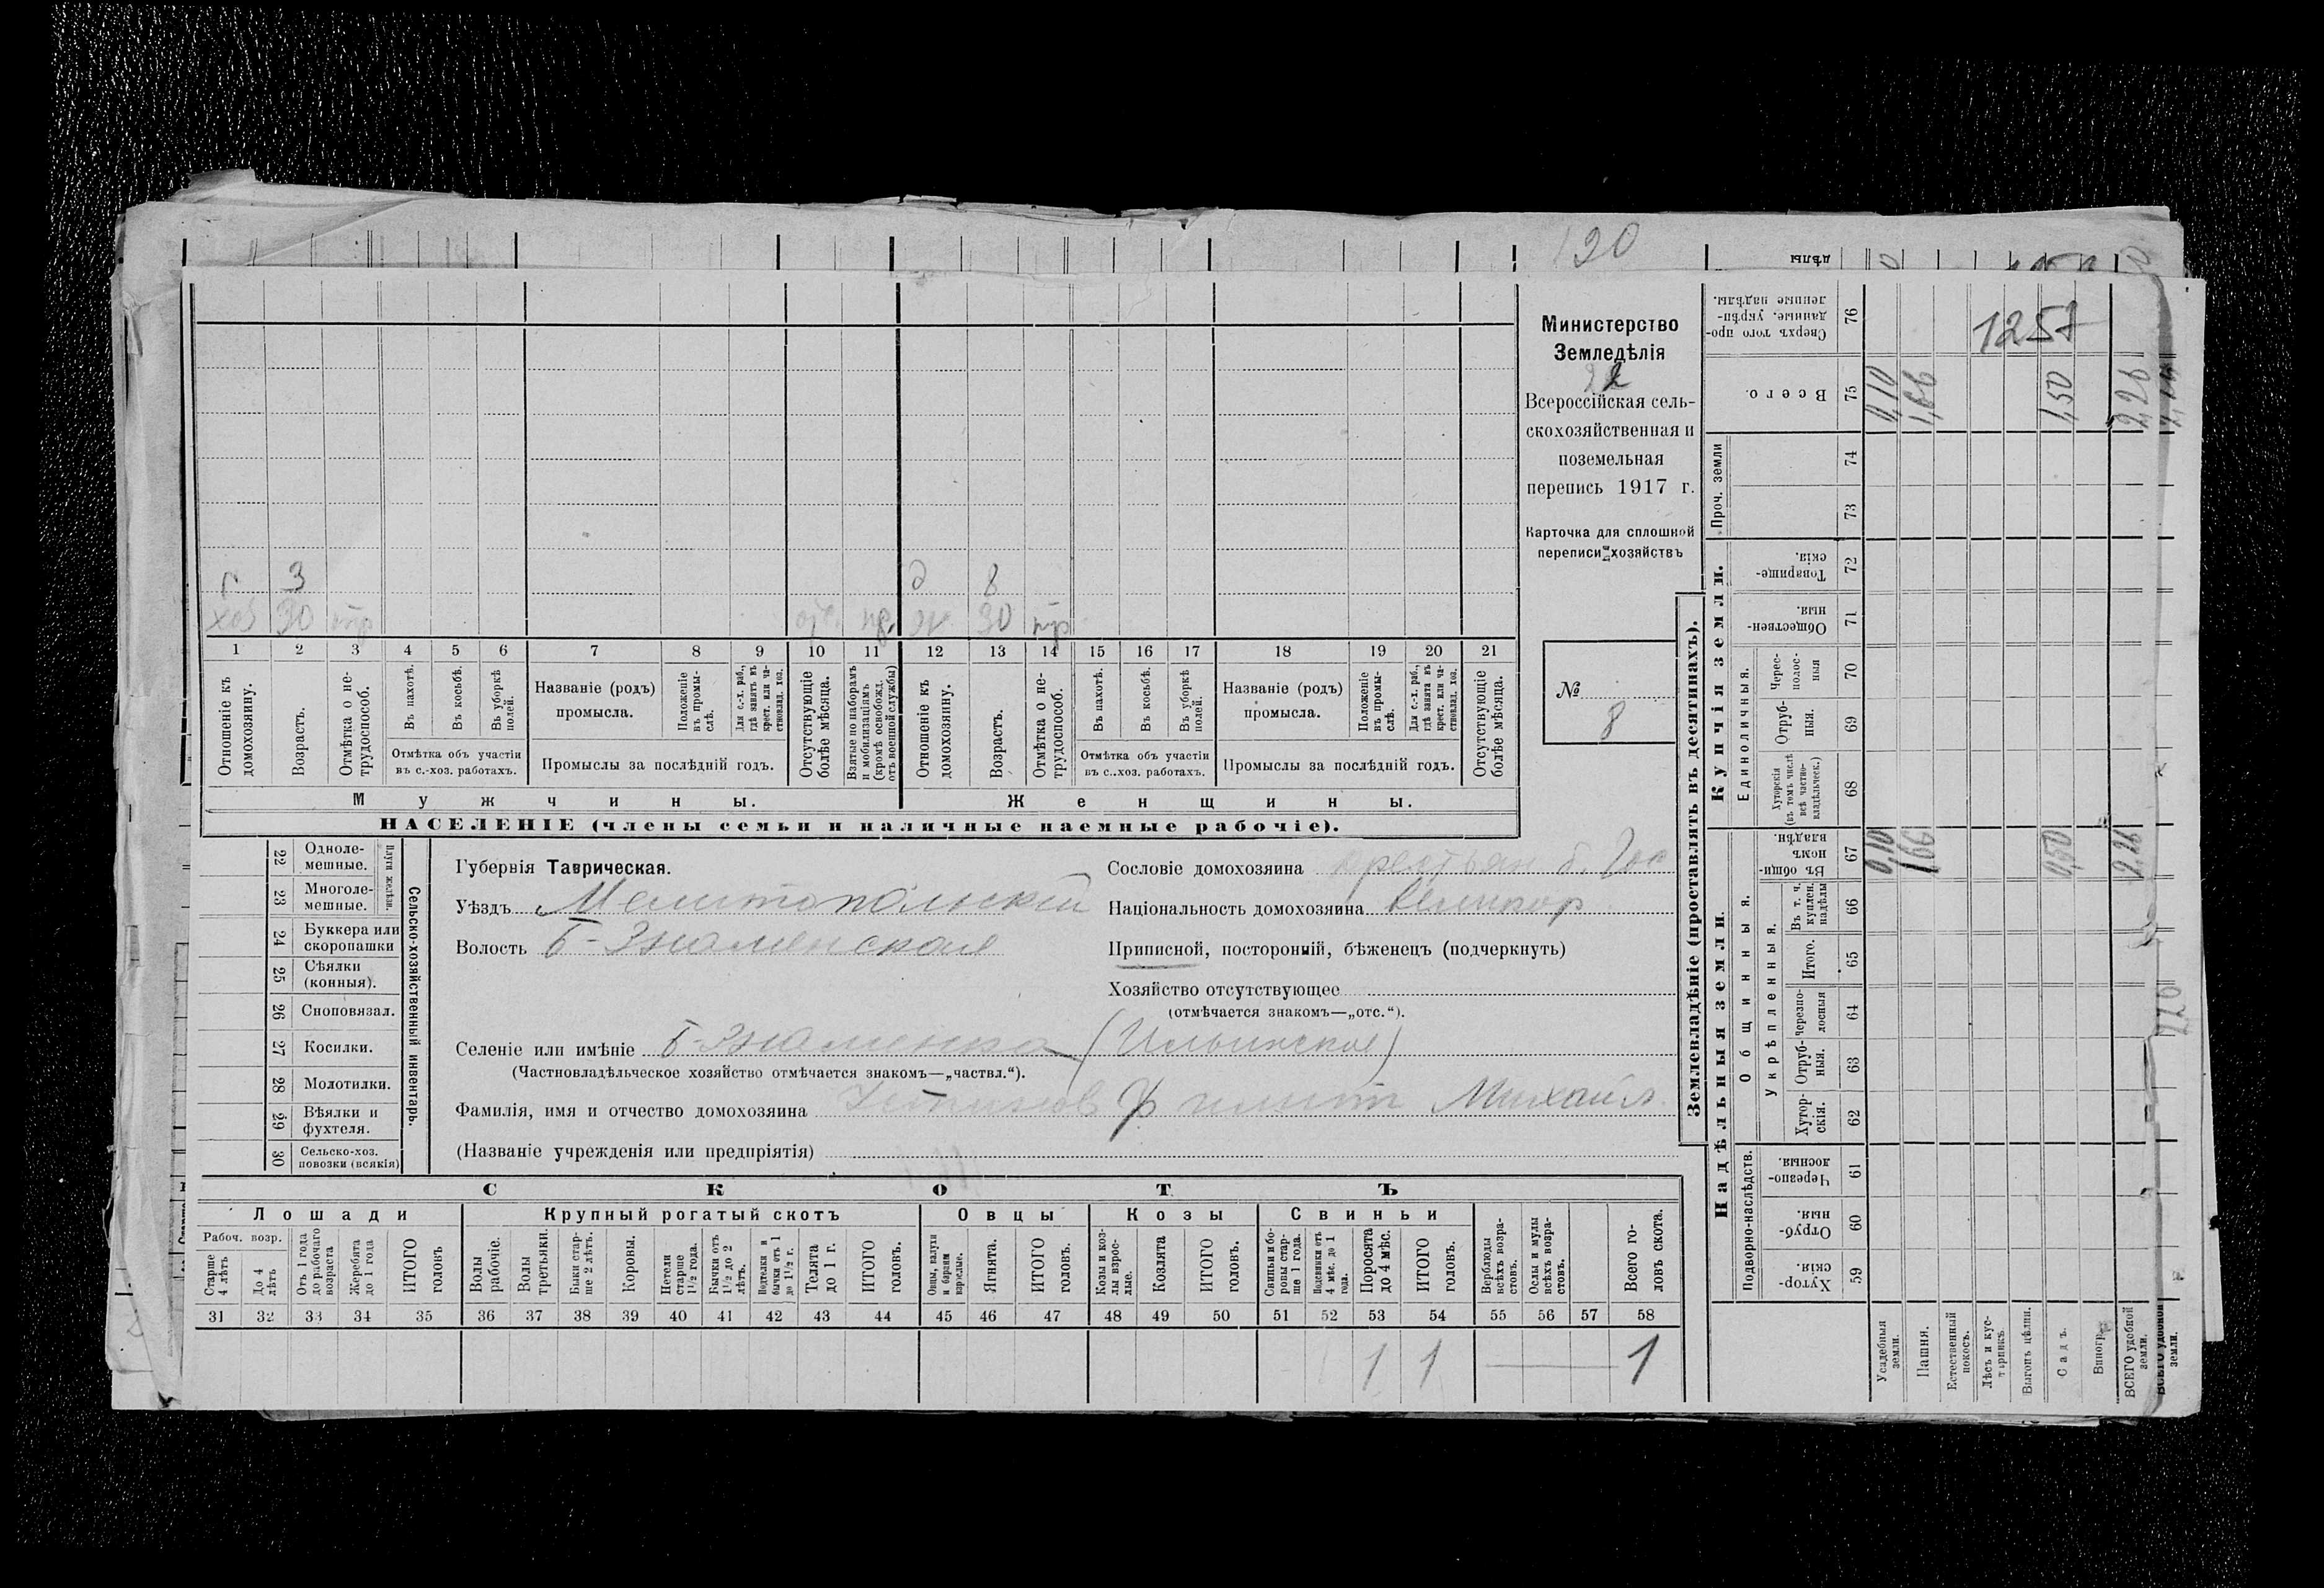 120
Министерство
Земледѣлія
22
Всероссійская сель-
скохозяйственная и
поземельная
перепись 1917 г.
Карточка для сплошной
переписи хозяйствъ
№
8
г 3
д 8
хоз 30
30
1 2 3 4 5 6 7 8 9 10 11 12 13 14 15 16 17 18 19 20 21
Отношеніе къ домохозяину.
Возрастъ.
Отмѣтка о не-трудоспособ.
Въ пахотѣ.
Въ косьбѣ.
Въ уборкѣ полей.
Отмѣтка объ участіи
въ с.-хоз. работахъ.
Названіе (родъ)
промысла.
Положеніе въ промы-слѣ.
Для с.-х. раб., гдѣ занятъ въ крест. или ча-стновлад. хоз.
Промыслы за послѣдній годъ.
Отсутствующіе болѣе мѣсяца.
Взятые по наборамъ и мобилизаціямъ (кромѣ освобожд. отъ военной службы)
Отношеніе къ домохозяину.
Возрастъ.
Отмѣтка о не-трудоспособ.
Въ пахотѣ.
Въ косьбѣ.
Въ уборкѣ полей.
Отмѣтка объ участіи
въ с..хоз. работахъ.
Названіе (родъ)
промысла.
Положеніе въ промы-слѣ.
Для с.-х. раб., гдѣ занята въ крест. или ча-стновлад. хоз.
Промыслы за послѣдній годъ.
Отсутствующіе болѣе мѣсяца.
Мужчины.
Женщины.
НАСЕЛЕНІЕ (члены семьи и наличные наемные рабочіе).
22 Одноле-мешные.
23 Многоле-мешные.
Плуги желѣзн.
24 Буккера или скоропашки
25 Сѣялки (конныя).
26 Сноповязал.
27 Косилки.
28 Молотилки.
29 Вѣялки и фухтеля.
30 Сельско-хоз. повозки (всякія)
Сельско-хозяйственный инвентарь.
Губернія Таврическая.
Уѣздъ Мелитопольскій
Волость Б-Знаменская
Сословіе домохозяина крестьян б. Гос
Національность домохозяина великор
Приписной, посторонній, бѣженецъ (подчеркнуть)
Хозяйство отсутствующее
(отмѣчается знакомъ—„отс.“).
Селеніе или имѣніе Б-Знаменка (Ильинское)
(Частновладѣльческое хозяйство отмѣчается знакомъ—„частвл.“).
Фамилія, имя и отчество домохозяина Михайл
(Названіе учрежденія или предпріятія)
СКОТЪ
Лошади
Крупный рогатый скотъ
Овцы
Козы
Свиньи
Рабоч. возр.
Старше 4 лѣтъ
До 4 лѣтъ
Отъ 1 года до рабочаго возраста
Жеребята до 1 года
ИТОГО головъ
Волы рабочіе.
Волы третьяки.
Быки стар-ше 2 лѣтъ.
Коровы.
Нетели старше 1½ года.
Бычки отъ 1½ до 2 лѣтъ.
Подтелки и бычки отъ 1 до 1½ г.
Телята до 1 г.
ИТОГО головъ.
Овцы, валухи и бараны взрослые.
Ягнята.
ИТОГО головъ.
Козы и коз-лы взрос-лые.
Козлята
ИТОГО головъ.
Свиньи и бо-ровы стар-ше 1 года.
Подсвинки отъ 4 мѣс. до 1 года.
Поросята до 4 мѣс.
ИТОГО головъ.
Верблюды всѣхъ возра-стовъ.
Ослы и мулы всѣхъ возра-стовъ.
Всего го-ловъ скота.
31 32 33 34 35 36 37 38 39 40 41 42 43 44 45 46 47 48 49 50 51 52 53 54 55 56 57 58
1 1 1
Землевладѣніе (проставлять въ десятинахъ).
Надѣльныя земли.
Купчія земли.
Проч. земли
Подворно-наслѣдств.
Общинныя.
Укрѣпленныя.
Единоличныя.
дѣлы
Сверхъ того про-данные, укрѣп-ленные надѣлы. 76
Всего. 75
74
73
Товарище-скія. 72
Обществен-ныя. 71
Черес-полос-ныя 70
Отруб-ныя. 69
Хуторскія (въ томъ числѣ всѣ частно-владѣльческ.) 68
Въ общи-номъ владѣн. 67
Въ т. ч. куплен. надѣлы 66
Итого. 65
Черезпо-лосныя 64
Отруб-ныя. 63
Хутор-скія. 62
Черезпо-лосныя. 61
Отруб-ныя. 60
Хутор-скія. 59
1257
0,10
1,66
2,26
0,10
1,66
0,50
2,26
Усадебныя земли.
Пашня.
Естественный покосъ.
Лѣсъ и кус-тарникъ
Выгонъ цѣлин.
Садъ.
Виногр.
ВСЕГО удобной земли.
ВСЕГО удобной земли.